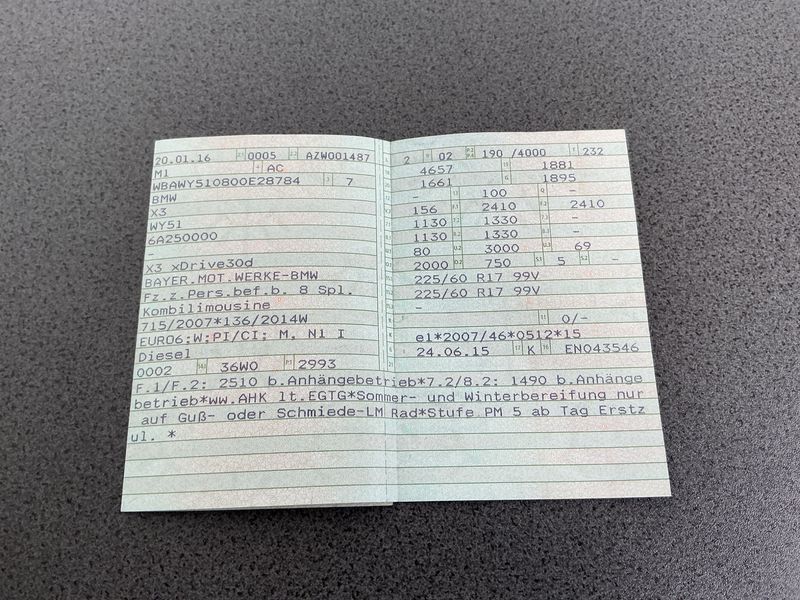 20.01.16 0005 AZW001487
M1 AC
WBAWY510800E28784 7
BMW
X3
WY51
6A250000
-
X3 xDrive30d
BAYER.MOT.WERKE-BMW
Fz.z.Pers.bef.b. 8 Spl.
Kombilimousine
715/2007*136/2014W
EURO6:W:PI/CI: M, N1 I
Diesel
0002 36W0 2993
2 02 190 /4000 232
4657 1881
1661 1895
- 100 -
156 2410 2410
1130 1330 -
1130 1330 -
80 3000 69
2000 750 5 -
225/60 R17 99V
225/60 R17 99V
-
0/-
e1*2007/46*0512*15
24.06.15 K EN043546
F.1/F.2: 2510 b.Anhängebetrieb*7.2/8.2: 1490 b.Anhänge
betrieb*ww.AHK lt.EGTG*Sommer- und Winterbereifung nur
auf Guß- oder Schmiede-LM Rad*Stufe PM 5 ab Tag Erstz
ul. *